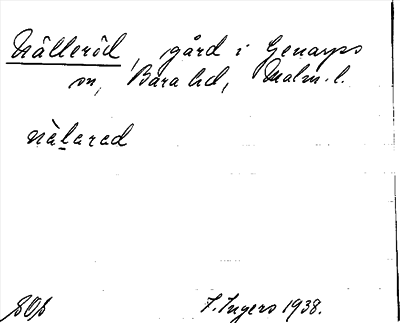 Nälleröd, gård i Genarps
sn, Bara hd, Malm. l.
nàlarad
I. Ingers 1938.